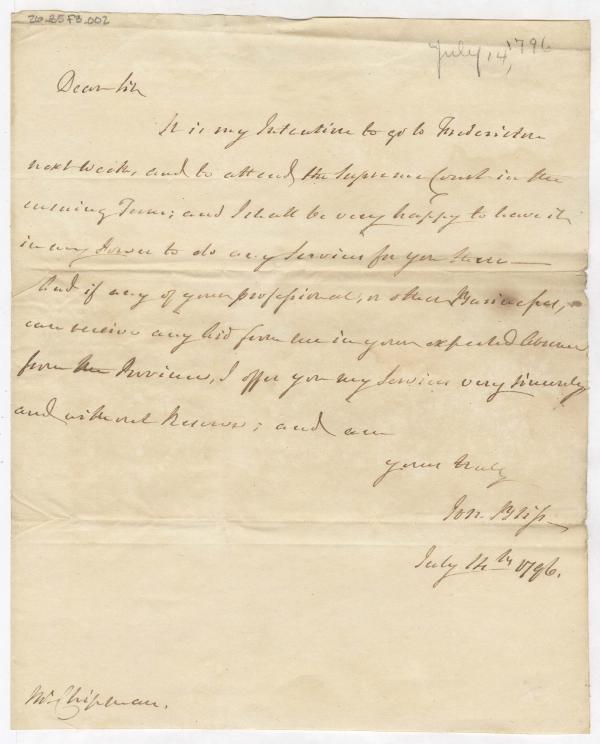 26-85 F3-002
July 14, 1796
Dear Sir
It is my Intention to go to Fredericton
next week, and to attend the Supreme Court in the
ensuing Term; and I shall be very happy to have it
in my Power to do any Services for you there—
And if any of your professional, or other Businesses,
can receive any Aid from me in your expected Absence
from the Province, I offer you my Services very sincerely
and without Reserve; and am
yours truly
Jon. Bliss
July 14th 1796.
Mr. Chipman.